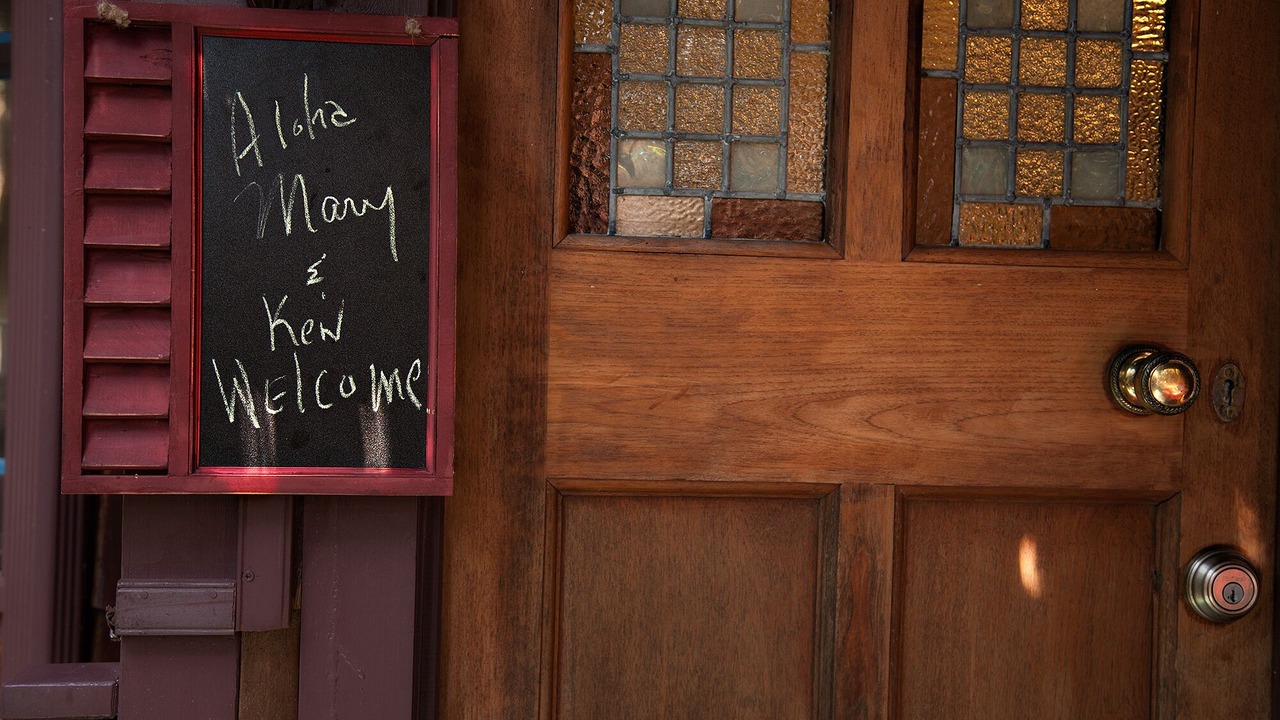 Aloha
Mary
&
Ken
Welcome